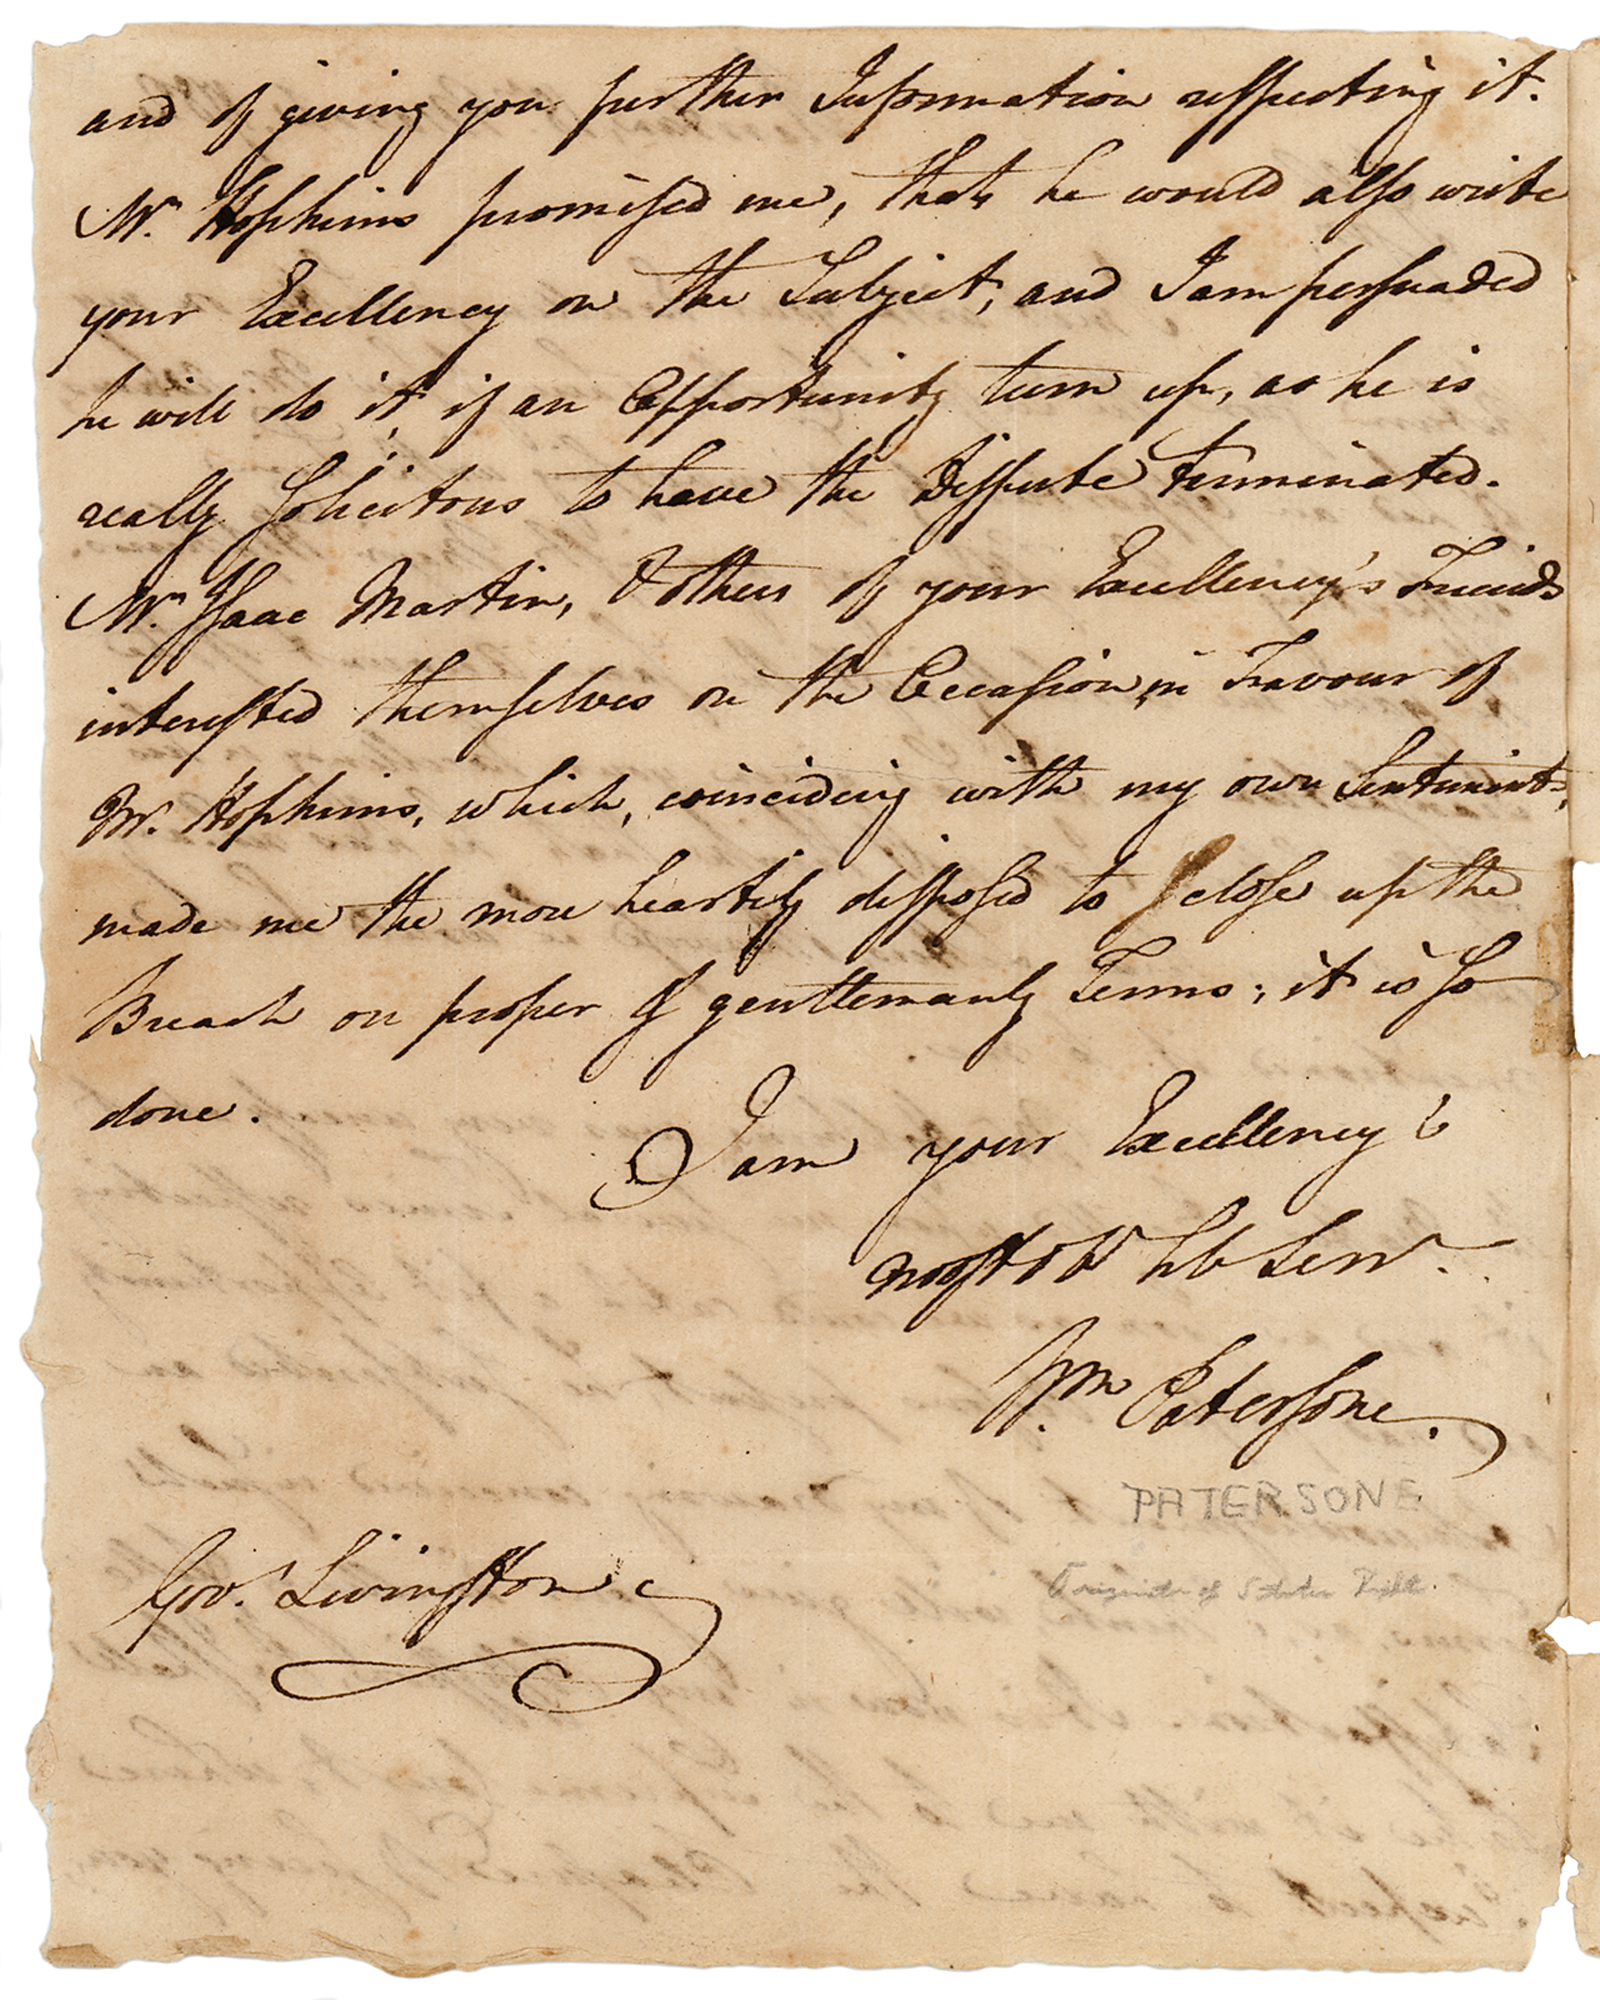 and of giving you further Information respecting it.
Mr. Hopkins promised me, that he would also write
your Excellency on the Subject, and I am persuaded
he will do it, if an Opportunity turn up, as he is
really solicitous to have the Dispute terminated.
Mr. Isaac Martin, & others of your Excellency's Friends
interested themselves on the Occasion, in Favour of
Mr. Hopkins, which, coinciding with my own Sentiments,
made me the more heartily disposed to close up the
Breach on proper & gentlemanly Terms; it is so
done.
I am your Excellency's
most ob hb Serv.
Wm. Patersone.
PATERSONE
of Right.
Gov. Livingston